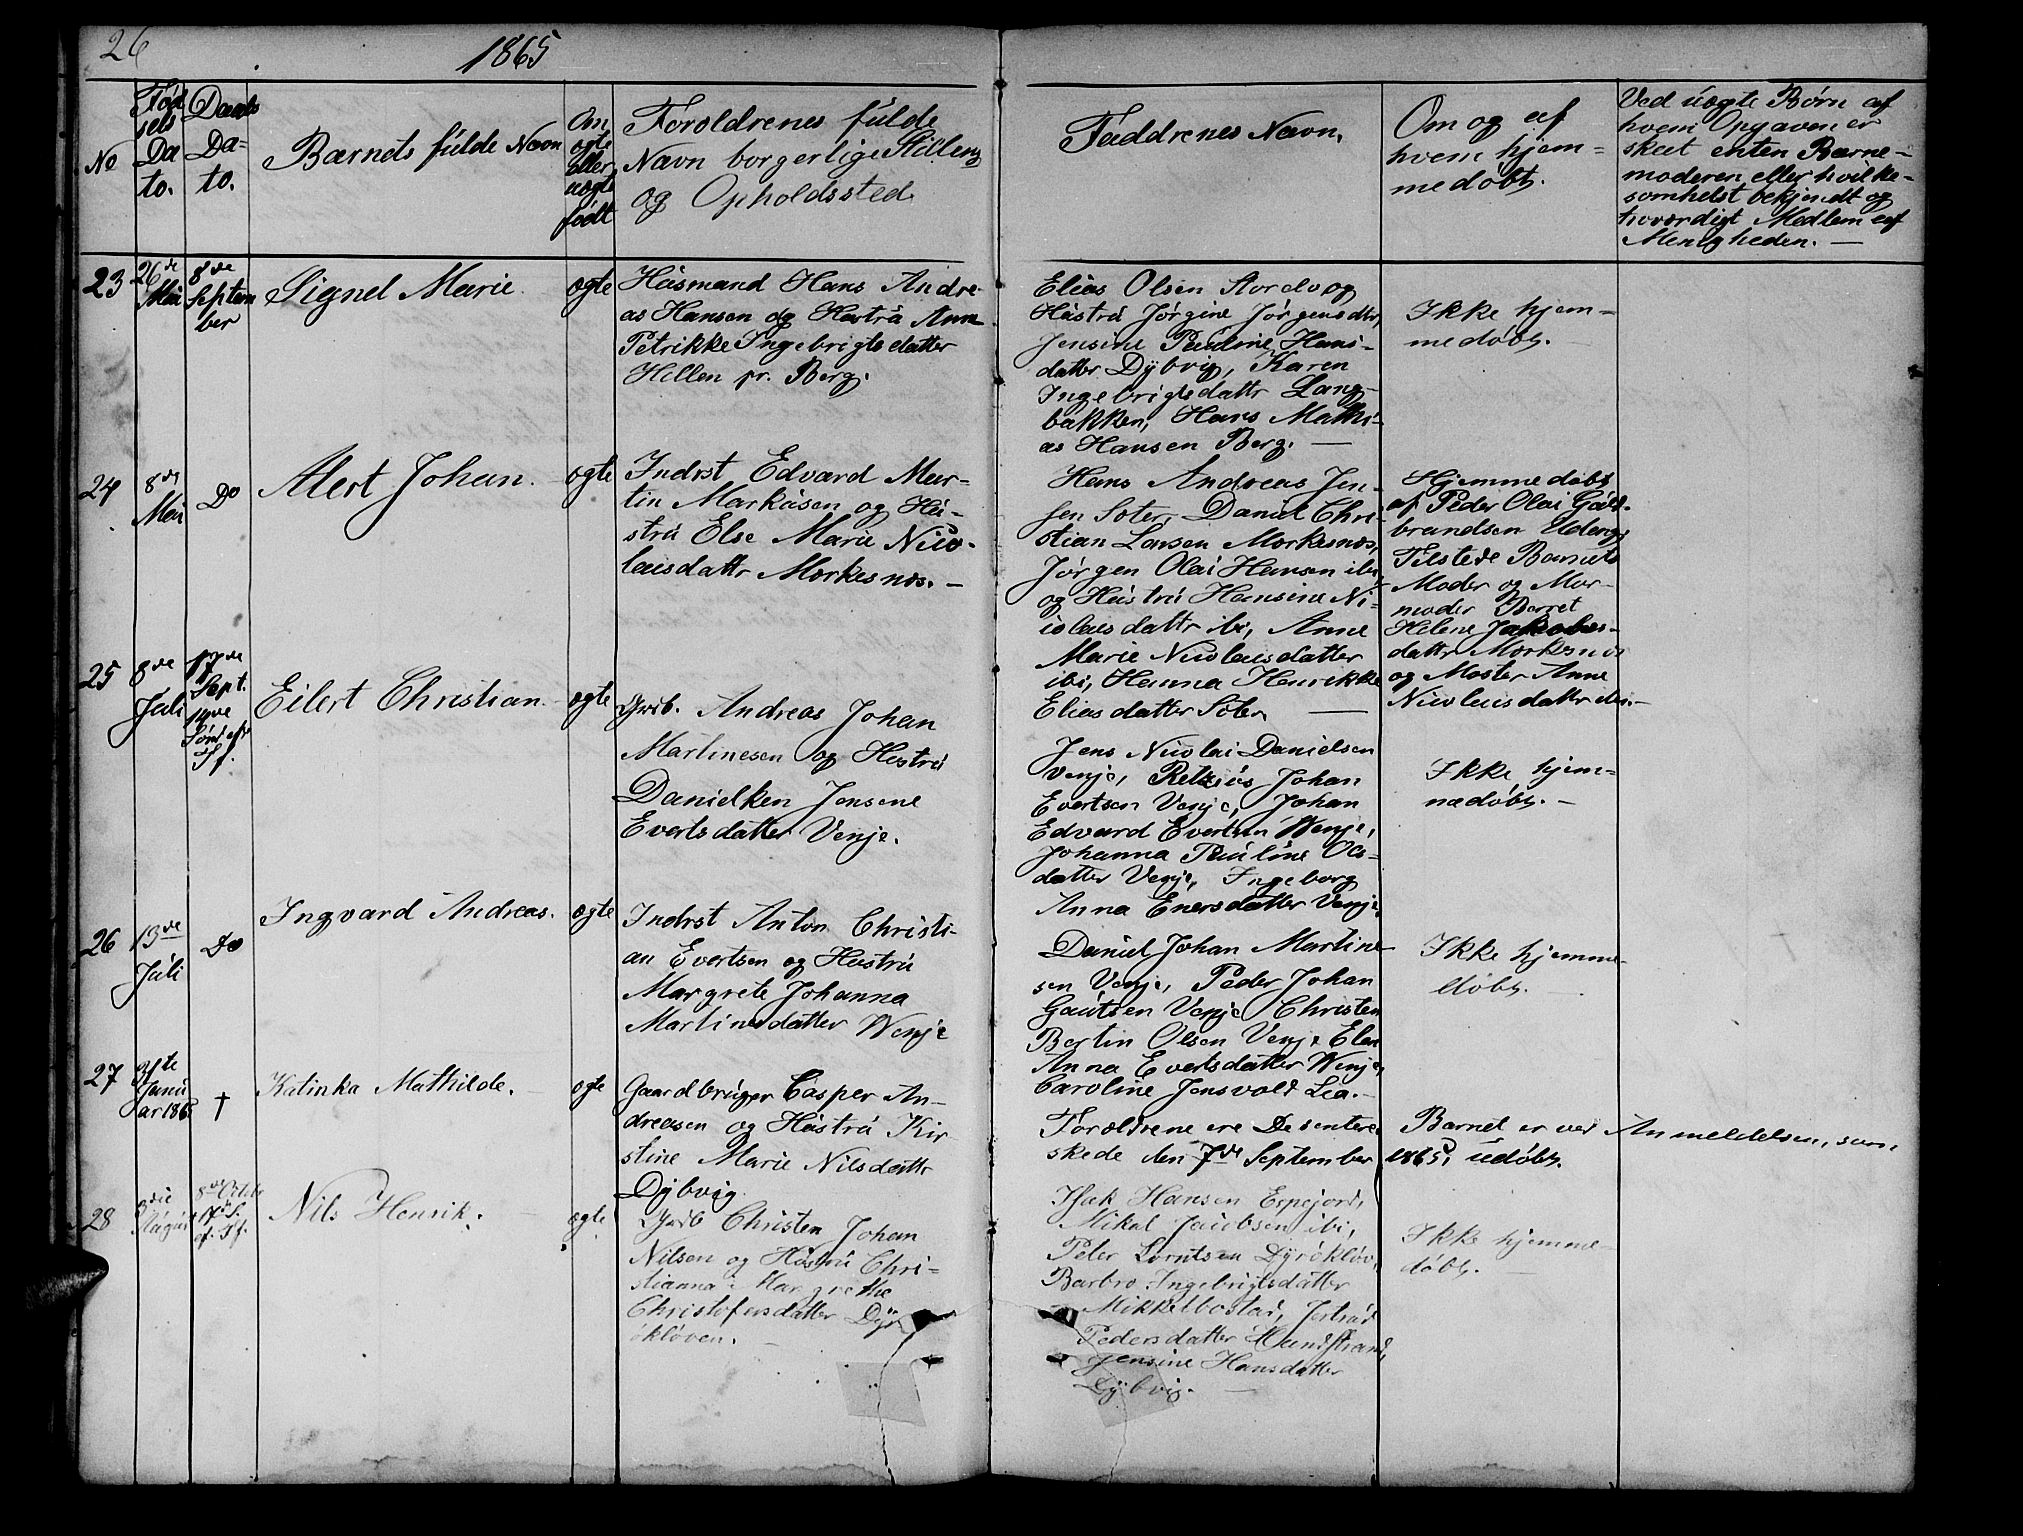 26
1865
No
Fød
sels
Da
to.
Daabs
Da-
to.
Barnets fulde Navn
Om
ægte
eller
uægte
født
Forældrenes fulde
Navn borgerlige Stilling
og Opholdssted.
Faddrenes Navn.
Om og af
hvem hjem=
medøbt.
Ved uægte Børn af
hvem Opgaven er
skeet enten Barne-
moderen eller hvilke-
somhelst bekjendt og
troværdigt Medlem af
Menigheden. —
23
26de
Mai
8de
Septem
ber
Signel Marie.
ægte
Húsmand Hans Andre-
as Hansen og Hústrú Anne
Petrikke Ingebrigtsdatter
Hillen pr. Berg.
Elias Olsen Hordvog
Hústrú Jørgine Jørgensdtr,
Jensine Pauline Hans-
datter Dÿbvig, Karen
Ingebrigtsdattr Lang-
bakken, Hans Mathi-
as Hansen Berg. —
Ikke hjem-
medøbt.
24
8de
Mai
Do
Alert Johan.
ægte
Indrst Edvard Mar-
tin Markúsen og Hú-
strú Else Marie Nico-
laisdattr Morkesnæs. —
Hans Andreas Jen-
sen Soter, Daniel Chri-
stian Larsen Morkesnæs,
Jørgen Olai Hansen ibi
og Hústrú Hansine Ni-
colaisdattr ibi, Anne
Marie Nicolaisdatter
ibi, Hanna Henrikke
Eliasdatter Soter. —
Hjemmedøbt
af Peder Olai Gúld-
brandsen
Tilstede Barnets
Moder og Mor-
moder Berret
Helene Jakobs-
dattr Morkesnæs
og Moster Anne
Nicolaisdatter ibi. —
25
8de
Júli
17de
Sept.
14de
Sønd. eftr
Tf.
Eilert Christian.
ægte
Gprb. Andreas Johan
Martinesen og Hústrú
Danielken Jensine
Evertsdatter Venje.
Jens Nicolai Danielsen
Venje, Retzius Johan
Evertsen Venje, Johan
Edvard Evertsen Wenje,
Johanna Paúline Ols-
datter Venje, Ingeborg
Anna Enersdatter Venje.
Ikke hjem-
medøbt. —
26
13de
Júli
Do
Ingvard Andreas.
ægte
Indrst Anton Christi-
an Evertsen og Hústrú
Margrete Johanna
Martinesdatter Wenje
Daniel Johan Martine-
sen Venje, Peder Johan
Gaútsen Venje Christen
Bertin Olsen Venje Elen
Anna Evertsdatter Winje,
Caroline Jensvold Lia. —
Ikke hjemme-
døbt. —
27
31te
Janú
ar 1865
†
Katinka Mathilde.
ægte
Gaardbrúger Casper An-
dreasen og Hústrú Kir-
stine Marie Nilsdattr
Dÿbvig.
Forældrene ere Desentere,
skede den 7de September
Barnet er ved
1865, udøbt.
Anmeldelsen, som
28
8de Octobr
17de S.
ef. Tf.
Nils Henrik.
ægte
Gprb Christen Johan
Nilsen og Hústrú Chri-
stianna Margrethe
Christofersdatter Dÿr
økløven.
Isak Hansen Espejord,
Mikal Jacobsen ibi,
Peter Lorntsen Dÿrökløv,
Barbro Ingebrigtsdatter
Mikkelbostad, Jertrúd
Pedersdatter Hundstrand,
Jensine Hansdatter
Dÿbvig. —
Ikke hjemme-
døbt. —